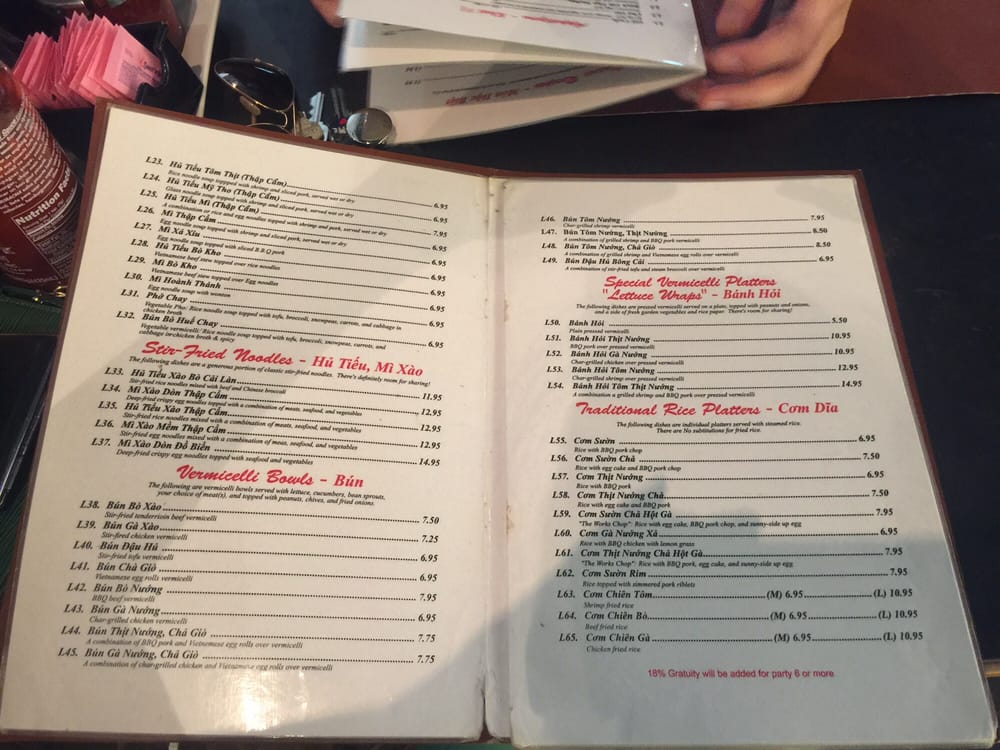 Nutrition Facts
L23. Hủ Tiếu Tôm Thịt (Thập Cẩm) 6.95
Rice noodle soup topped with shrimp and sliced pork, served wet or dry
L24. Hủ Tiếu Mỹ Tho (Thập Cẩm) 7.95
Glass noodle soup topped with shrimp and sliced pork, served wet or dry
L25. Hủ Tiếu Mì (Thập Cẩm) 6.95
A combination or rice and egg noodles topped with shrimp and pork, served wet or dry
L26. Mì Thập Cẩm 6.95
Egg noodle soup topped with shrimp and sliced pork, served wet or dry
L27. Mì Xá Xíu 6.95
Egg noodle soup topped with sliced B.B.Q pork
L28. Hủ Tiếu Bò Kho 6.95
Vietnamese beef stew topped over rice noodles
L29. Mì Bò Kho 6.95
Vietnamese beef stew topped over Egg noodles
L30. Mì Hoành Thánh 6.95
Egg noodle soup with wonton
L31. Phở Chay 6.95
Vegetable Pho: Rice noodle soup topped with tofu, broccoli, snowpeas, carrots, and cabbage in
chicken broth
L32. Bún Bò Huế Chay 6.95
Vegetable vermicelli: Rice noodle soup topped with tofu, broccoli, snowpeas, carrots, and
cabbage in chicken broth & spicy
Stir-Fried Noodles - Hủ Tiếu, Mì Xào
The following dishes are a generous portion of classic stir-fried noodles. There's definitely room for sharing!
L33. Hủ Tiếu Xào Bò Cải Làn 11.95
Stir-fried rice noodles mixed with beef and Chinese broccoli
L34. Mì Xào Dòn Thập Cẩm 12.95
Deep-fried crispy egg noodles topped with a combination of meats, seafood, and vegetables
L35. Hủ Tiếu Xào Thập Cẩm 12.95
Stir-fried rice noodles mixed with a combination of meats, seafood, and vegetables
L36. Mì Xào Mềm Thập Cẩm 12.95
Stir-fried egg noodles mixed with a combination of meats, seafood, and vegetables
L37. Mì Xào Dòn Đồ Biển 14.95
Deep-fried crispy egg noodles topped with seafood and vegetables
Vermicelli Bowls - Bún
The following are vermicelli bowls served with lettuce, cucumbers, bean sprouts,
your choice of meat(s), and topped with peanuts, chives, and fried onions.
L38. Bún Bò Xào 7.50
Stir-fried tenderrioin beef vermicelli
L39. Bún Gà Xào 7.25
Stir-fired chicken vermicelli
L40. Bún Đậu Hủ 6.95
Stir-fried tofu vermicelli
L41. Bún Chả Giò 6.95
Vietnamese egg rolls vermicelli
L42. Bún Bò Nướng 7.95
BBQ beef vermicelli
L43. Bún Gà Nướng 6.95
Char-grilled chicken vermicelli
L44. Bún Thịt Nướng, Chả Giò 7.75
A combination of BBQ pork and Vietnamese egg rolls over vermicelli
L45. Bún Gà Nướng, Chả Giò 7.75
A combination of char-grilled chicken and Vietnamese egg rolls over vermicelli
L46. Bún Tôm Nướng 7.95
Char-grilled shrimp vermicelli
L47. Bún Tôm Nướng, Thịt Nướng 8.50
A combination of grilled shrimp and BBQ pork vermicelli
L48. Bún Tôm Nướng, Chả Giò 8.50
A combination of grilled shrimp and Vietnamese egg rolls over vermicelli
L49. Bún Đậu Hủ Bông Cải 6.95
A combination of stir-fried tofu and steam broccoli over vermicelli
Special Vermicelli Platters
"Lettuce Wraps" - Bánh Hỏi
The following dishes are pressed vermicelli served on a plate, topped with peanuts and onions,
and a side of fresh garden vegetables and rice paper. There's room for sharing!
L50. Bánh Hỏi 5.50
Plain pressed vermicelli
L51. Bánh Hỏi Thịt Nướng 10.95
BBQ pork over pressed vermicelli
L52. Bánh Hỏi Gà Nướng 10.95
Char-grilled chicken over pressed vermicelli
L53. Bánh Hỏi Tôm Nướng 12.95
Char-grilled shrimp over pressed vermicelli
L54. Bánh Hỏi Tôm Thịt Nướng 14.95
A combination a grilled shrimp and BBQ pork over pressed vermicelli
Traditional Rice Platters - Cơm Dĩa
The following dishes are individual platters served with steamed rice.
There are No substitutions for fried rice.
L55. Cơm Sườn 6.95
Rice with BBQ pork chop
L56. Cơm Sườn Chả 7.50
Rice with egg cake and BBQ pork chop
L57. Cơm Thịt Nướng 6.95
Rice with BBQ pork
L58. Cơm Thịt Nướng Chả 7.50
Rice with egg cake and BBQ pork
L59. Cơm Sườn Chả Hột Gà 7.95
"The Works Chop": Rice with egg cake, BBQ pork chop, and sunny-side up egg
L60. Cơm Gà Nướng Xả 6.95
Rice with BBQ chicken with lemon grass
L61. Cơm Thịt Nướng Chả Hột Gà 7.95
"The Works Chop": Rice with BBQ pork, egg cake, and sunny-side up egg
L62. Cơm Sườn Rim 7.95
Rice topped with simmered pork riblets
L63. Cơm Chiên Tôm (M) 6.95 (L) 10.95
Shrimp fried rice
L64. Cơm Chiên Bò (M) 6.95 (L) 10.95
Beef fried rice
L65. Cơm Chiên Gà (M) 6.95 (L) 10.95
Chicken fried rice
18% Gratuity will be added for party 6 or more